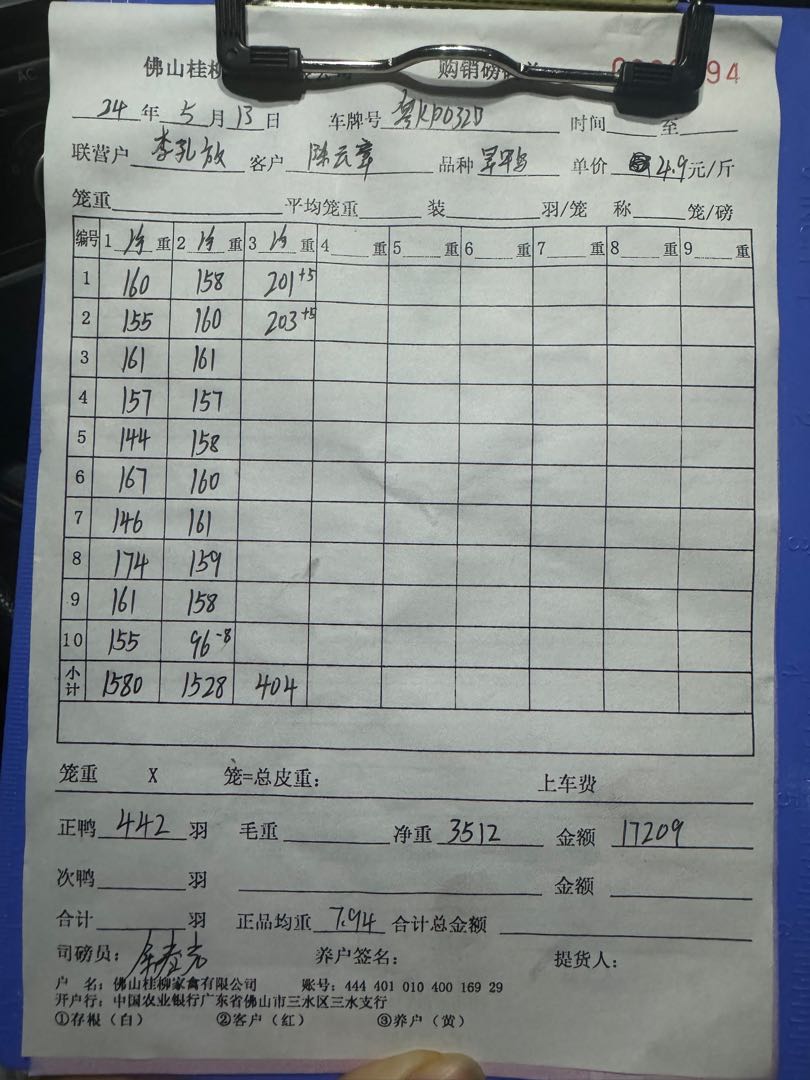 佛山桂柳 购销磅 94
24年5月13日 车牌号 粤KP032D 时间 至
联营户 李孔放 客户 陈云章 品种 旱鸭 单价 4.9元/斤
笼重 平均笼重 装 羽/笼 称 笼/磅
编号 1 重 2 重 3 重 4 重 5 重 6 重 7 重 8 重 9 重
1 160 158 201+5
2 155 160 203+5
3 161 161
4 157 157
5 144 158
6 167 160
7 146 161
8 174 159
9 161 158
10 155 96-8
小计 1580 1528 404
笼重 X 笼=总皮重: 上车费
正鸭 442 羽 毛重 净重 3512 金额 17209
次鸭 羽 金额
合计 羽 正品均重 7.94 合计总金额
司磅员: 养户签名: 提货人:
户 名: 佛山桂柳家禽有限公司 账号: 444 401 010 400 169 29
开户行: 中国农业银行广东省佛山市三水区三水支行
①存根（白） ②客户（红） ③养户（黄）